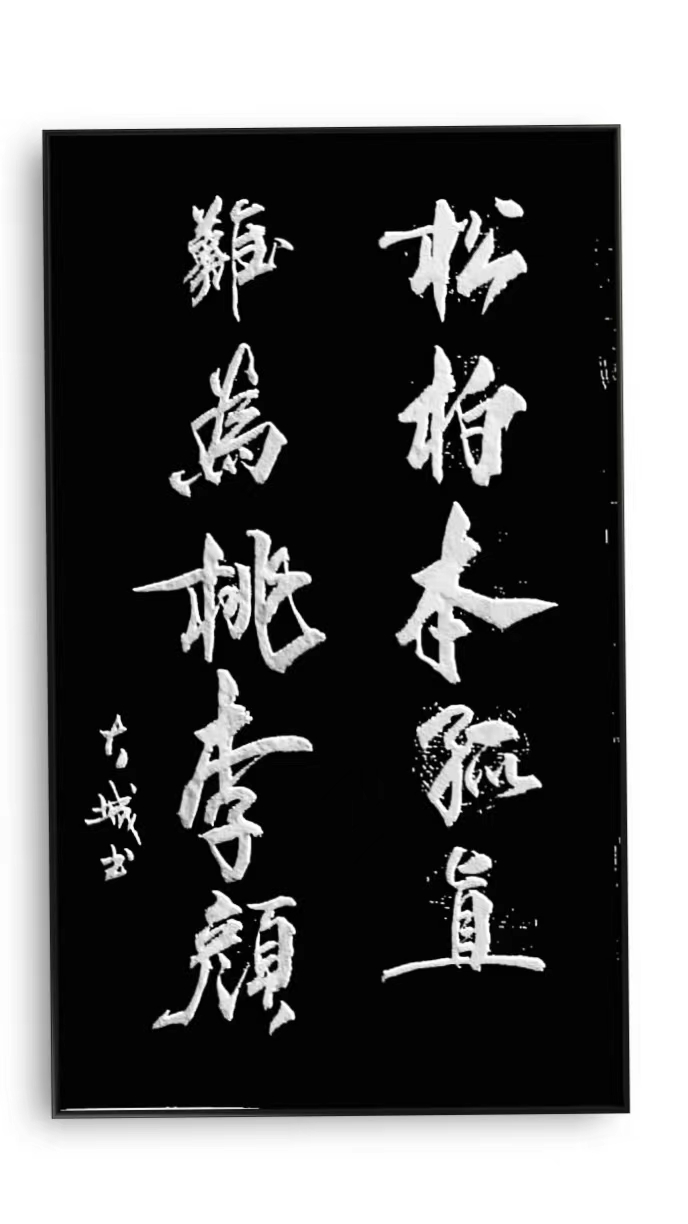 松柏本孤直
難為桃李顏
大城书